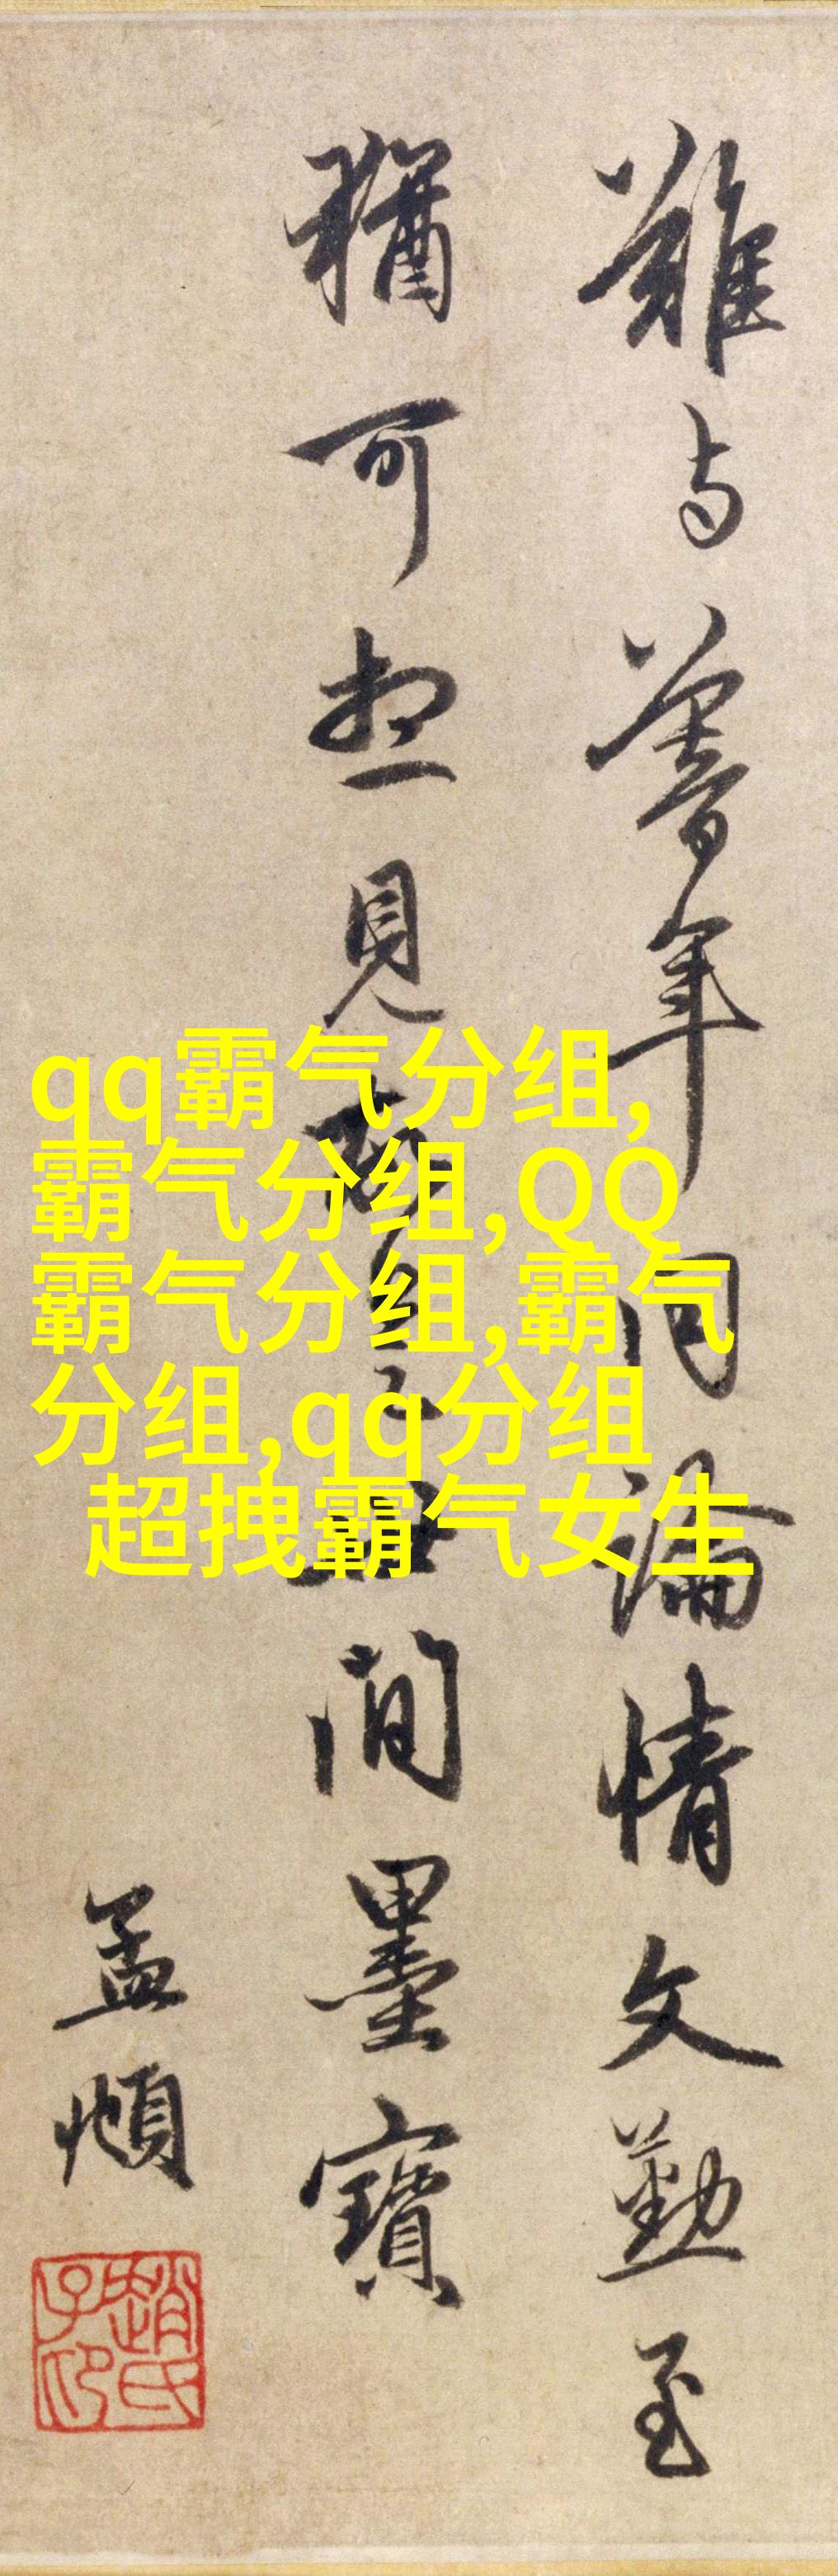 難与暮年同論情文勤至
猶可想見間墨寶
孟頫
趙氏子卬
qq霸气分组,
霸气分组,QQ
霸气分组,霸气
分组,qq分组
超拽霸气女生